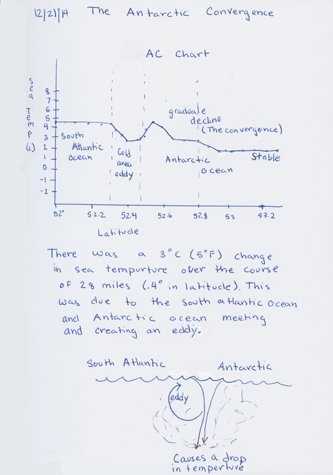 12/21/14 The Antarctic Convergence
AC Chart
Sea Temp (c)
8
7
6
5
4
3
2
1
0
-1
-2
South
Atlantic
ocean
Cold
area
eddy
graduale
decline
(The convergence)
Antarctic
ocean
Stable
52° 52.2 52.4 52.6 52.8 53 47.2
Latitude
There was a 3°C (5°F) change
in sea tempurture over the course
of 28 miles (.4° in latitude). This
was due to the South atlantic Ocean
and Antarctic ocean meeting
and creating an eddy.
South Atlantic Antarctic
eddy
Causes a drop
in temperture